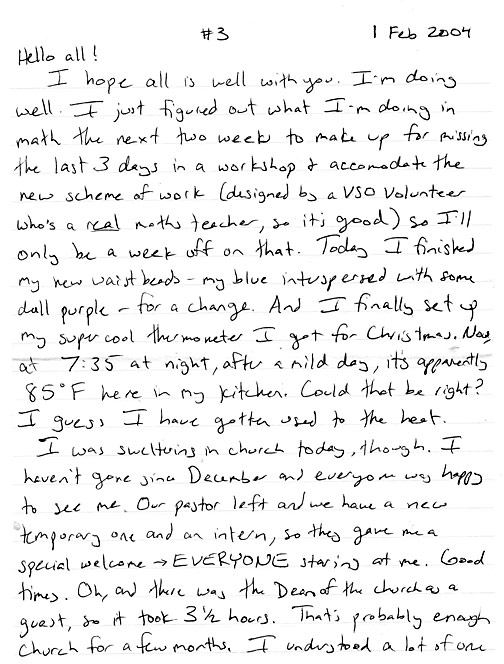 #3 1 Feb 2004
Hello all!
I hope all is well with you. I'm doing
well. I just figured out what I'm doing in
math the next two weeks to make up for missing
the last 3 days in a workshop & accomodate the
new scheme of work (designed by a VSO volunteer
who's a real maths teacher, so it's good) so I'll
only be a week off on that. Today I finished
my new waistbeads - my blue interspersed with some
dull purple - for a change. And I finally set up
my super cool thermometer I got for Christmas. Now,
at 7:35 at night, after a mild day, it's apparently
85°F here in my kitchen. Could that be right?
I guess I have gotten used to the heat.
I was sweltering in church today, though. I
haven't gone since December and everyone was happy
to see me. Our pastor left and we have a new
temporary one and an intern, so they gave me a
special welcome → EVERYONE staring at me. Good
times. Oh, and there was the Dean of the church as a
guest, so it took 3 1/2 hours. That's probably enough
church for a few months. I understood a lot of one